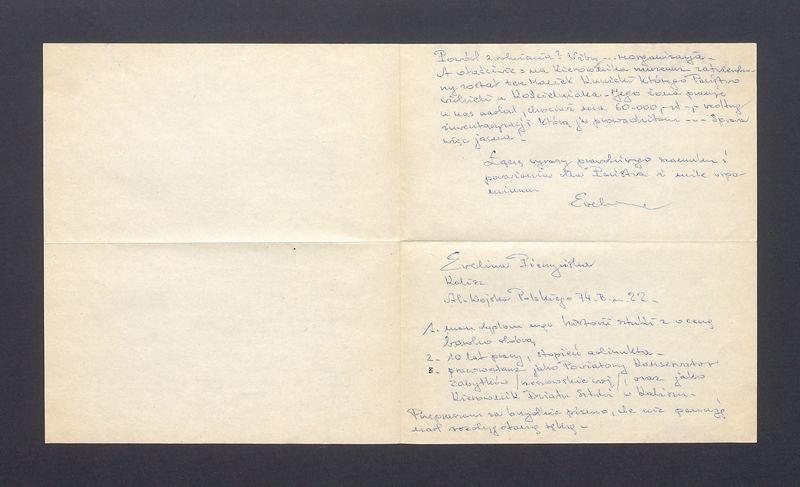 Powód zwolnienia? Niby --- reorganizacja -
A właściwie na Kierownika muzeum zatrudnio-
ny został też Maciek Kunicki którego Państwo
widzieli u Kościelniaka - Jego żona pracuje
u nas nadal, chociaż ma 60-000,- zł -, według
inwentaryzacji którą ja prowadziłam --- Sprawa
więc jasna!
Łączę wyrazy prawdziwego szacunku i
poważania dla Państwa i mile wspo-
minam
Evelina
Evelina
Kalisz
Al-Wojska Polskiego 74.B. m. 22-
1. mam dyplom mgr historii sztuki z oceną
bardzo dobrą
2- 10 lat pracy, stopień adiunkta -
3- pracowałam jako Powiatowy Konserwator
Zabytków / woj/, oraz jako
Kierownik Działu Sztuki w Kaliszu
Przepraszam za brzydkie pismo, ale nie panuję
nad rozdygotaną ręką -